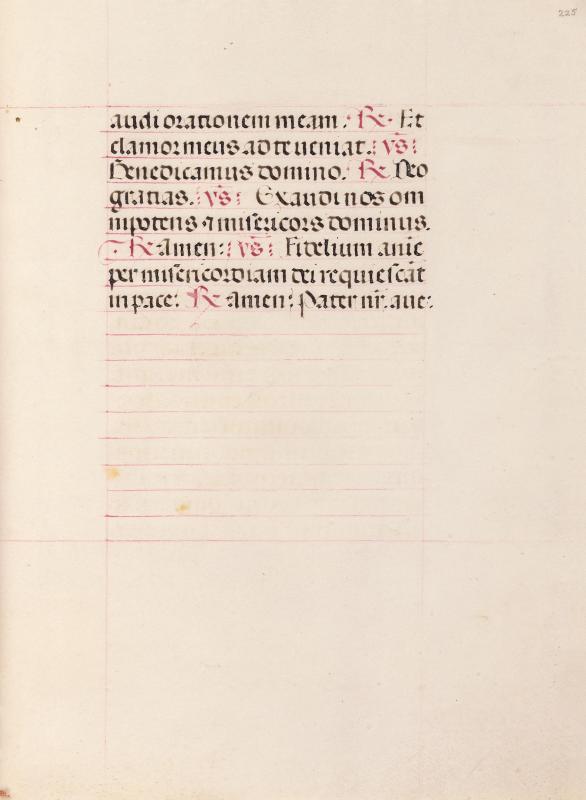 225
audi orationem meam. ℞. Et
clamor meus ad te ueniat. v̄s:
Benedicamus domino. ℞ Deo
gratias. v̄s: Exaudi nos om
nipotens ⁊ misericors dominus.
℞ Amen: v̄s: Fidelium anīe
per misericordiam dei requiescāt
in pace: ℞ Amen: Pater nr̄. aue: